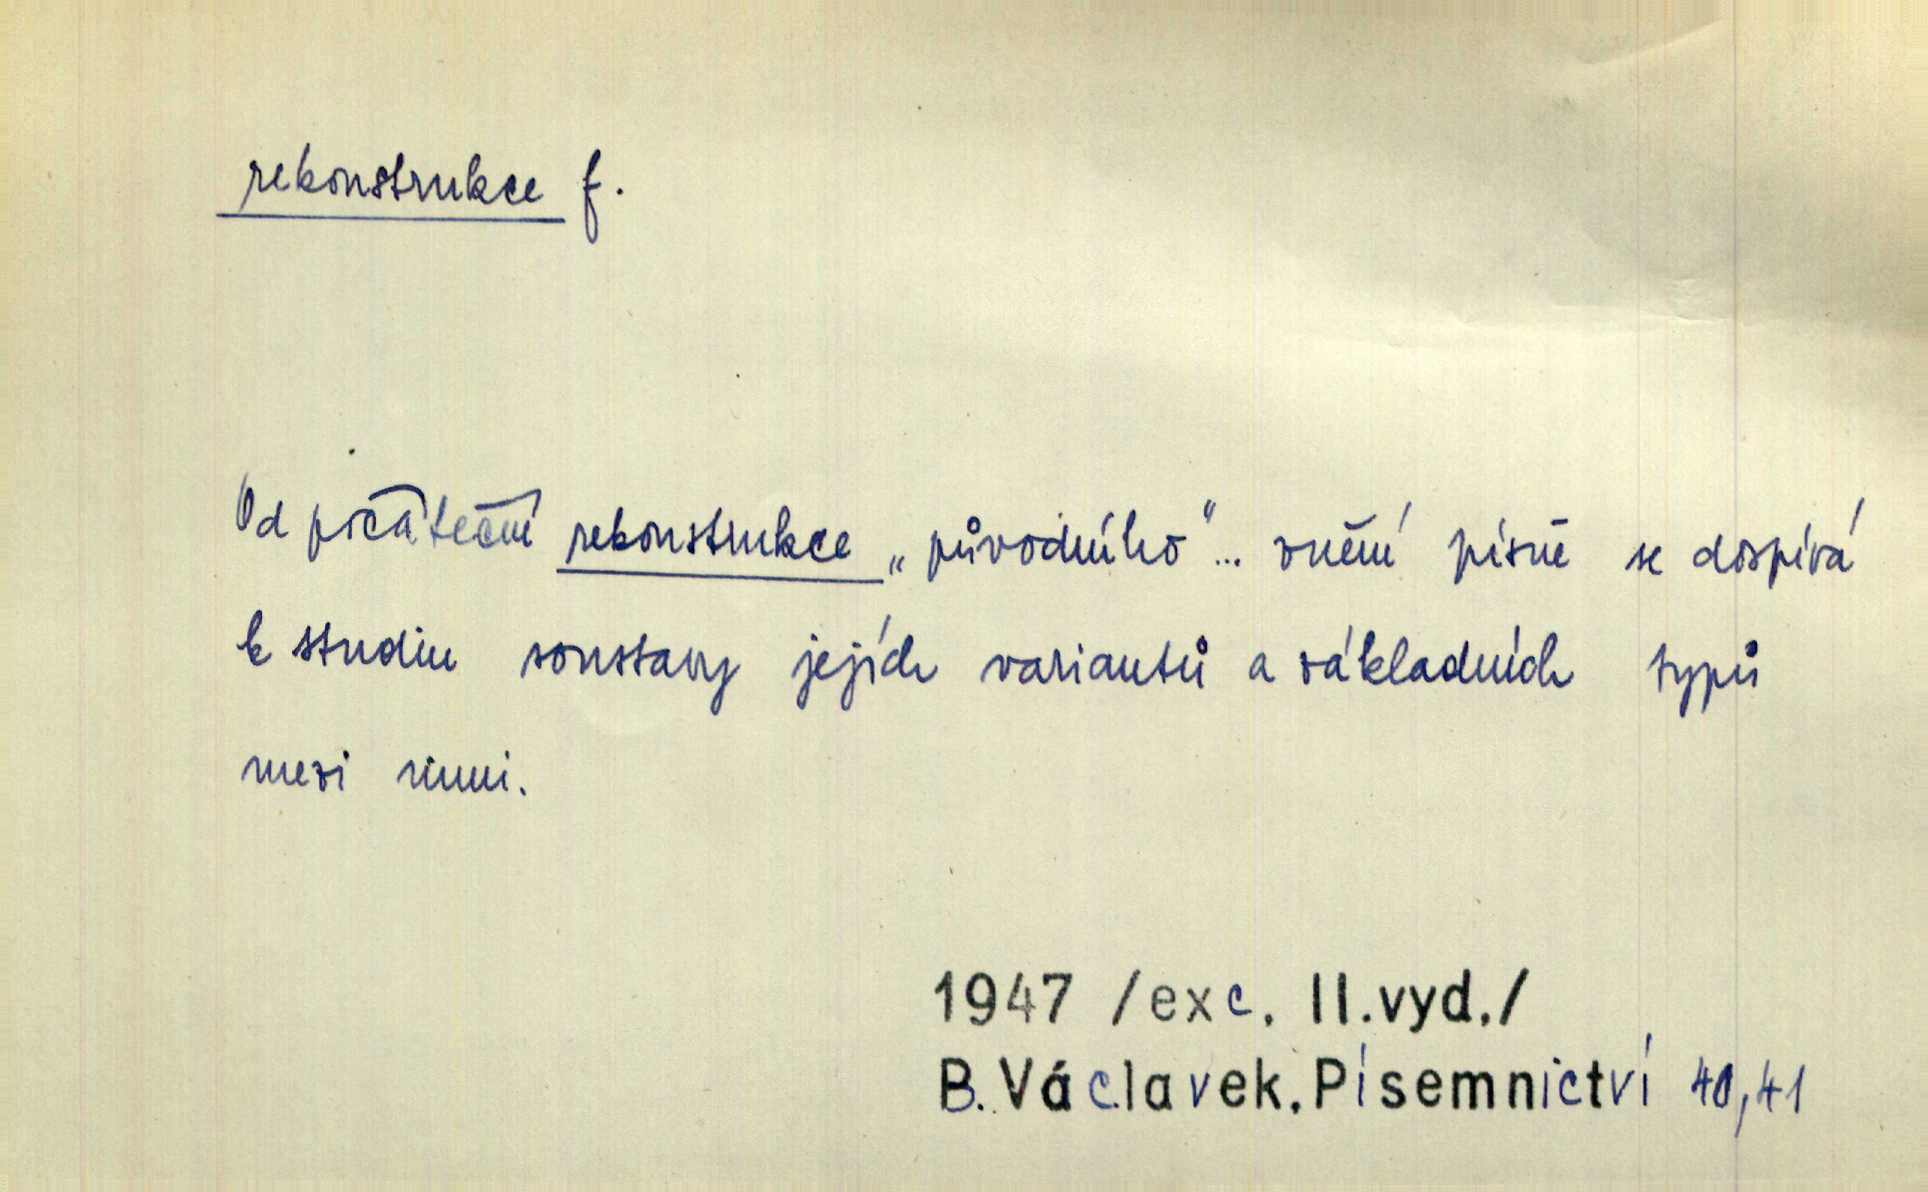 rekonstrukce f.
Od počáteční rekonstrukce „původního"... znění písně se dospívá
k studiu soustavy jejích variantů a základních typů
mezi nimi.
1947 /exc. II.vyd./
B.Václavek,Písemnictví 40,41